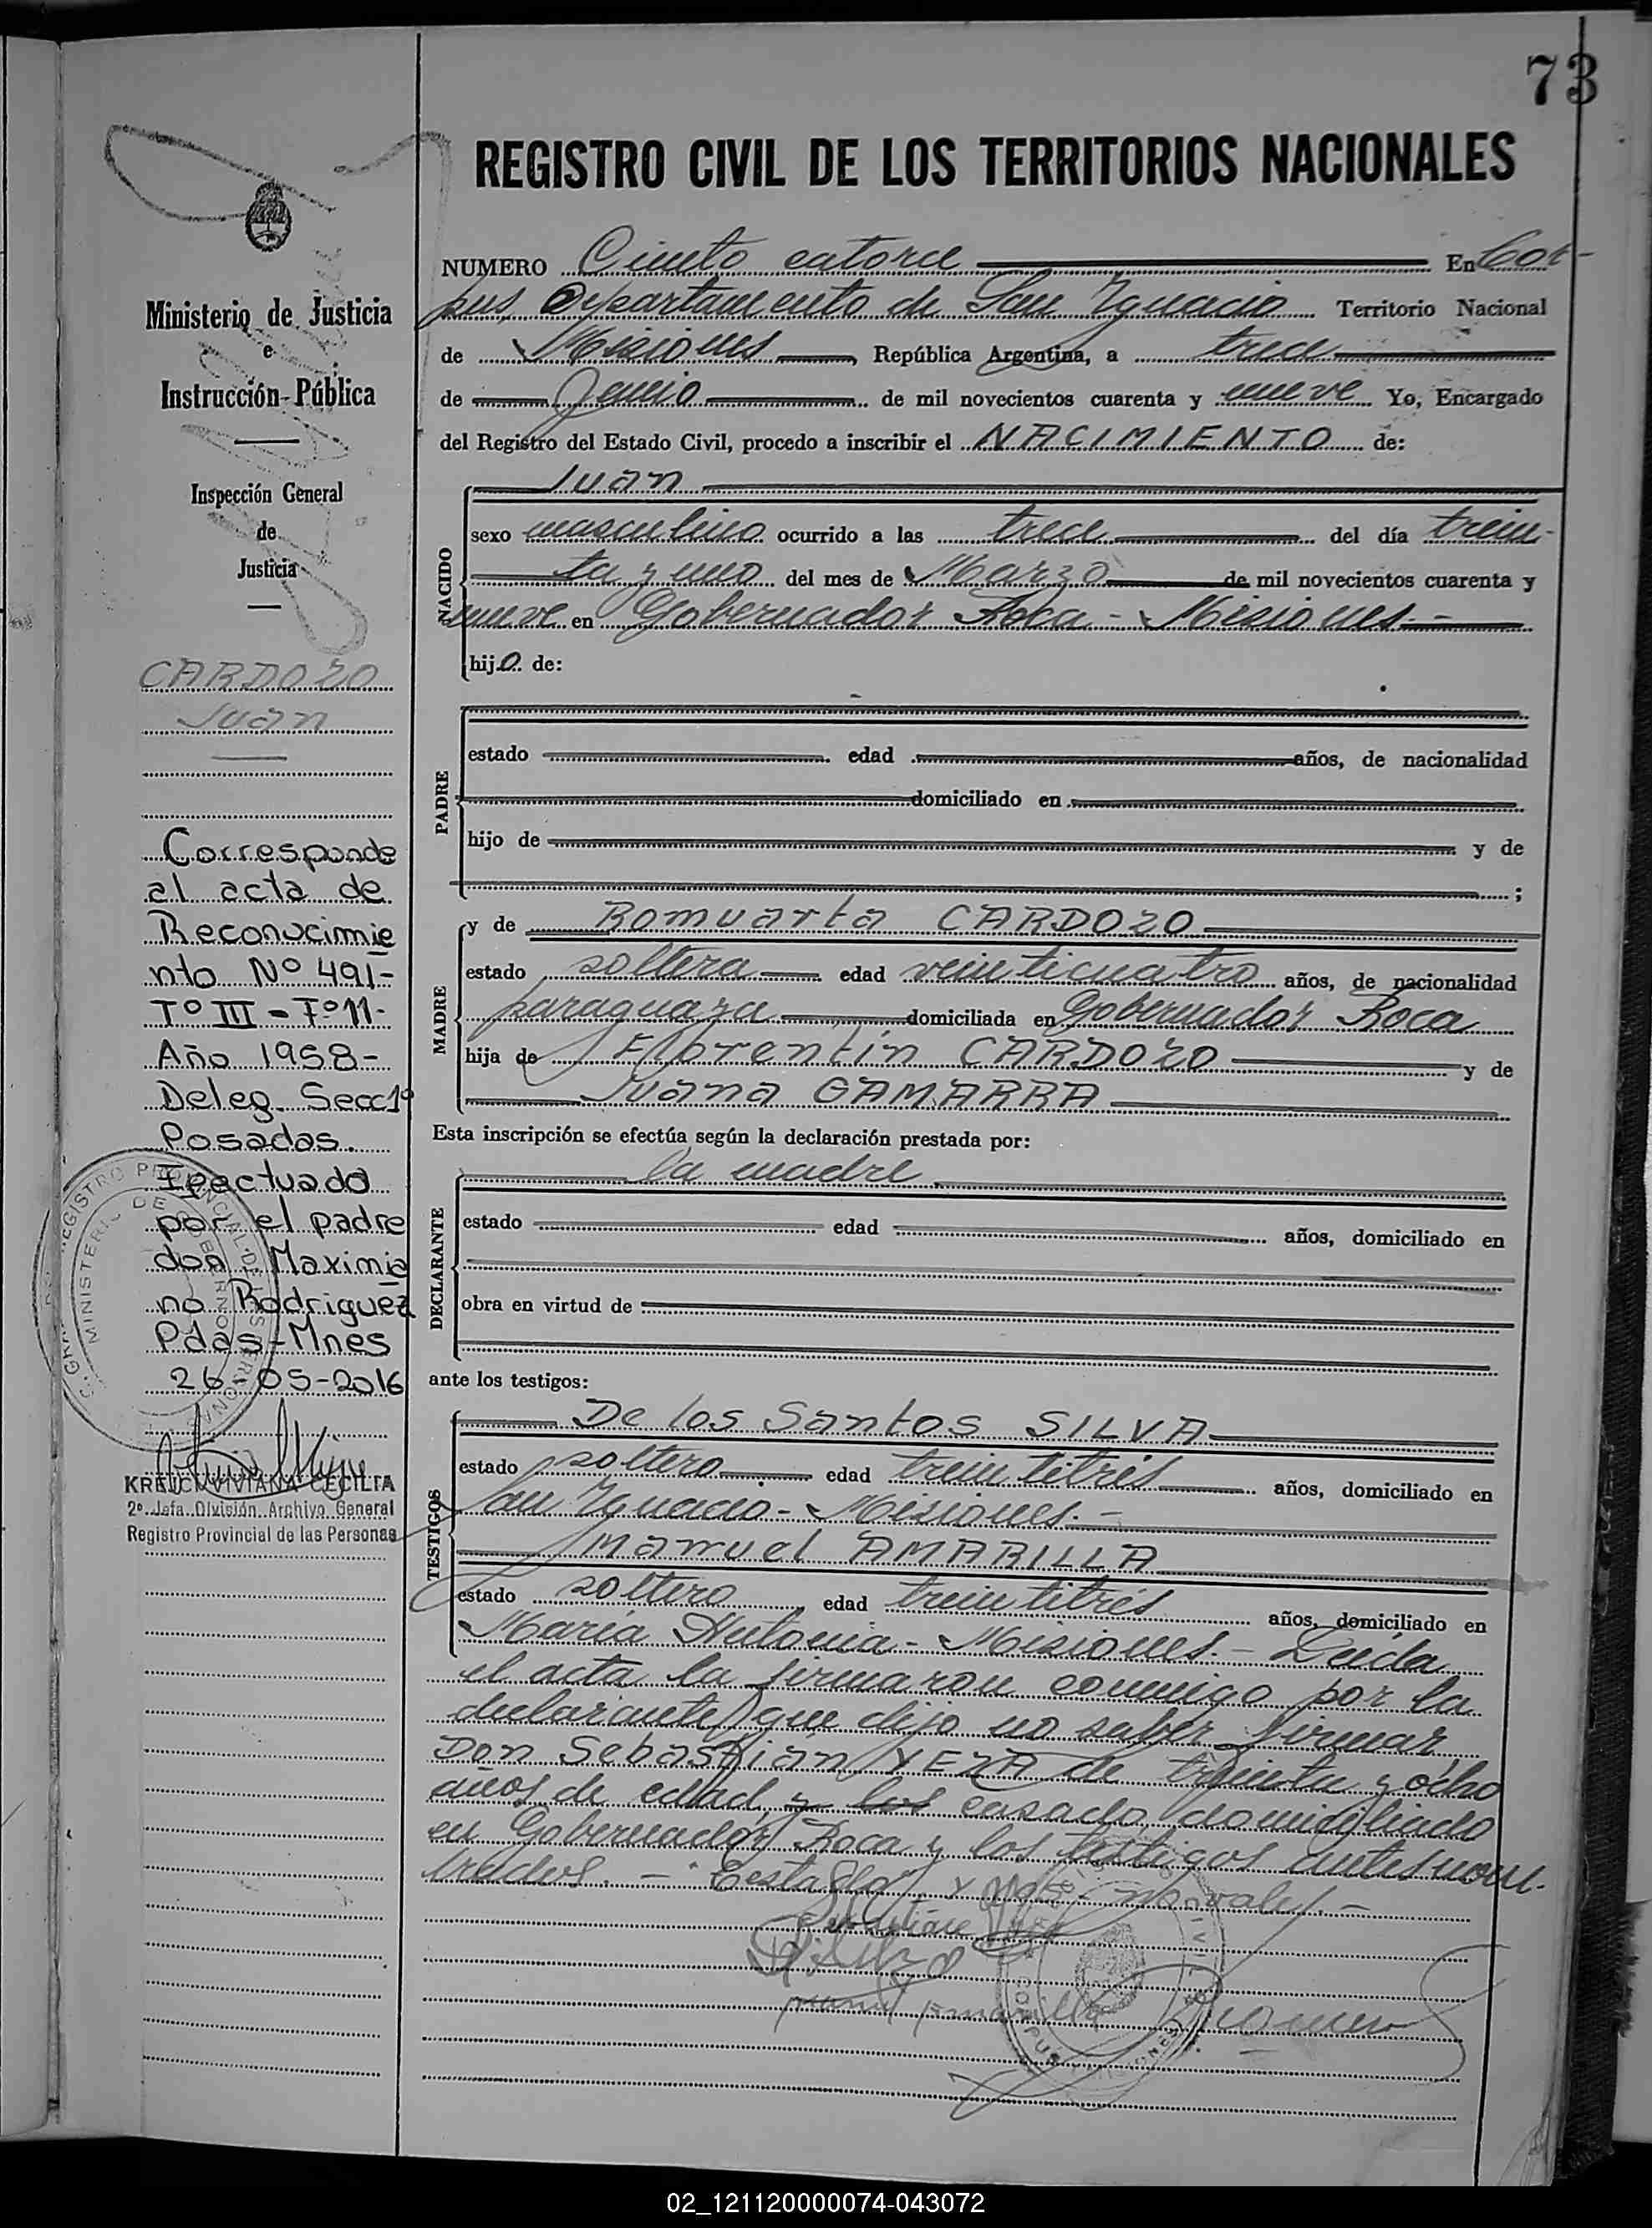 73
REGISTRO CIVIL DE LOS TERRITORIOS NACIONALES
NUMERO Ciento catorce En Cor-
pus, Departamento de San Ygnacio Territorio Nacional
de Misiones, República Argentina, a trece
de Junio de mil novecientos cuarenta y nueve Yo, Encargado
del Registro del Estado Civil, procedo a inscribir el NACIMIENTO de:
NACIDO
Juan
sexo masculino ocurrido a las trece del día trein-
ta y uno del mes de Marzo de mil novecientos cuarenta y
nueve en Gobernador Roca - Misiones.-
hijo de:
PADRE
estado edad años, de nacionalidad
domiciliado en
hijo de y de
;
MADRE
y de Romuarta CARDOZO
estado soltera edad veinticuatro años, de nacionalidad
paraguaya domiciliada en Gobernador Roca
hija de Florentín CARDOZO y de
Juana GAMARRA
Esta inscripción se efectúa según la declaración prestada por:
DECLARANTE
la madre
estado edad años, domiciliado en
obra en virtud de
ante los testigos:
TESTIGOS
De los Santos SILVA
estado soltero edad treintitrés años, domiciliado en
San Ygnacio - Misiones.-
Manuel AMARILLA
estado soltero edad treintitrés años, domiciliado en
María Antonia - Misiones.- Leída
el acta la firmaron conmigo por la
declarante que dijo no saber firmar
Don Sebastián YEZA de treinta y ocho
años de edad, y los casado, domiciliado
en Gobernador Roca y los testigos antes nom-
brados. - Testado: y los: No vale.-
Ministerio de Justicia
e
Instrucción Pública
Inspección General
de
Justicia
CARDOZO
Juan
Corresponde
al acta de
Reconocimie
nto Nº 491-
Tº III - Fº 11-
Año 1958-
Deleg. Secc 1º
Posadas.
Efectuado
por el padre
don Maximia
no Rodriguez
Pdas-Mnes
26-05-2016
REGISTRO PROVINCIAL DE LAS PERSONAS
MINISTERIO DE GOBIERNO
KREUCI VIVIANA CECILIA
2º Jefa División Archivo General
Registro Provincial de las Personas
CORPUS
02_121120000074-043072